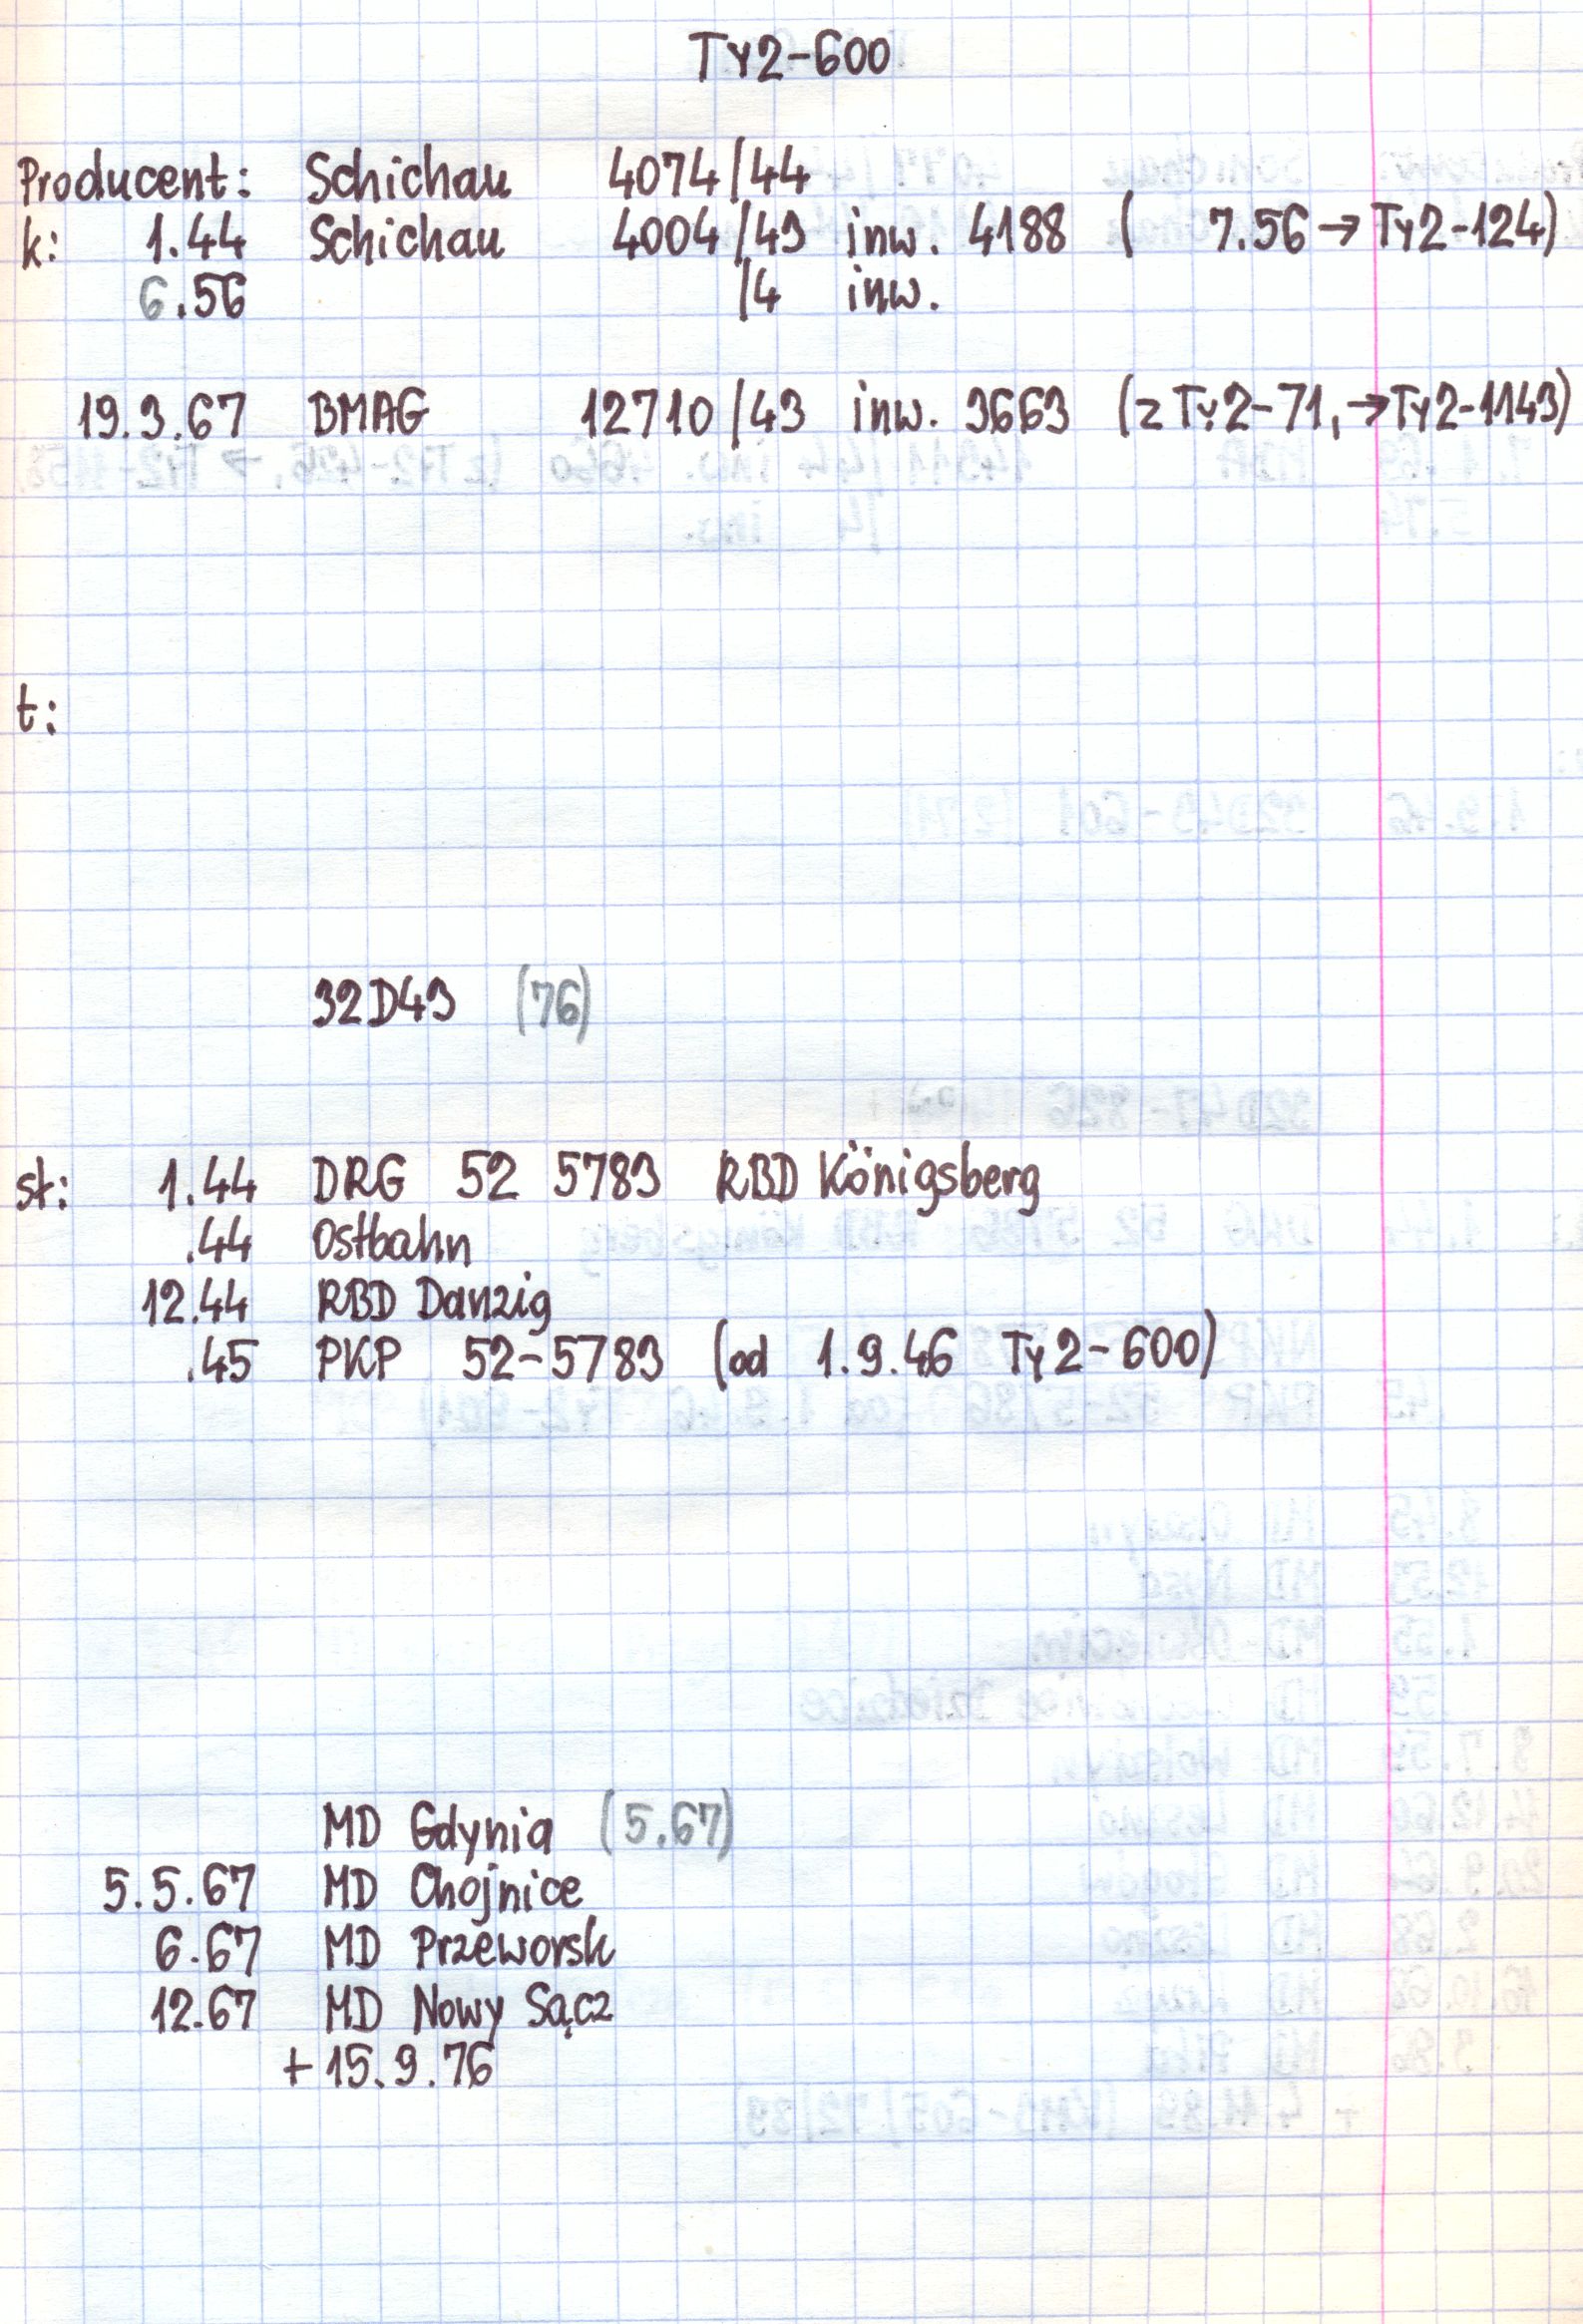 Ty2-600
Producent: Schichau 4074/44
k: 1.44 Schichau 4004/43 inw. 4188 ( 7.56 → Ty2-124)
6.56 /4 inw.
19.3.67 BMAG 12710/43 inw. 3663 (z Ty2-71, → Ty2-1143)
t:
32D43 (76)
st: 1.44 DRG 52 5783 RBD Königsberg
.44 Ostbahn
12.44 RBD Danzig
.45 PKP 52-5783 (od 1.9.46 Ty2-600)
MD Gdynia (5.67)
5.5.67 MD Chojnice
6.67 MD Przeworsk
12.67 MD Nowy Sącz
+ 15.9.76